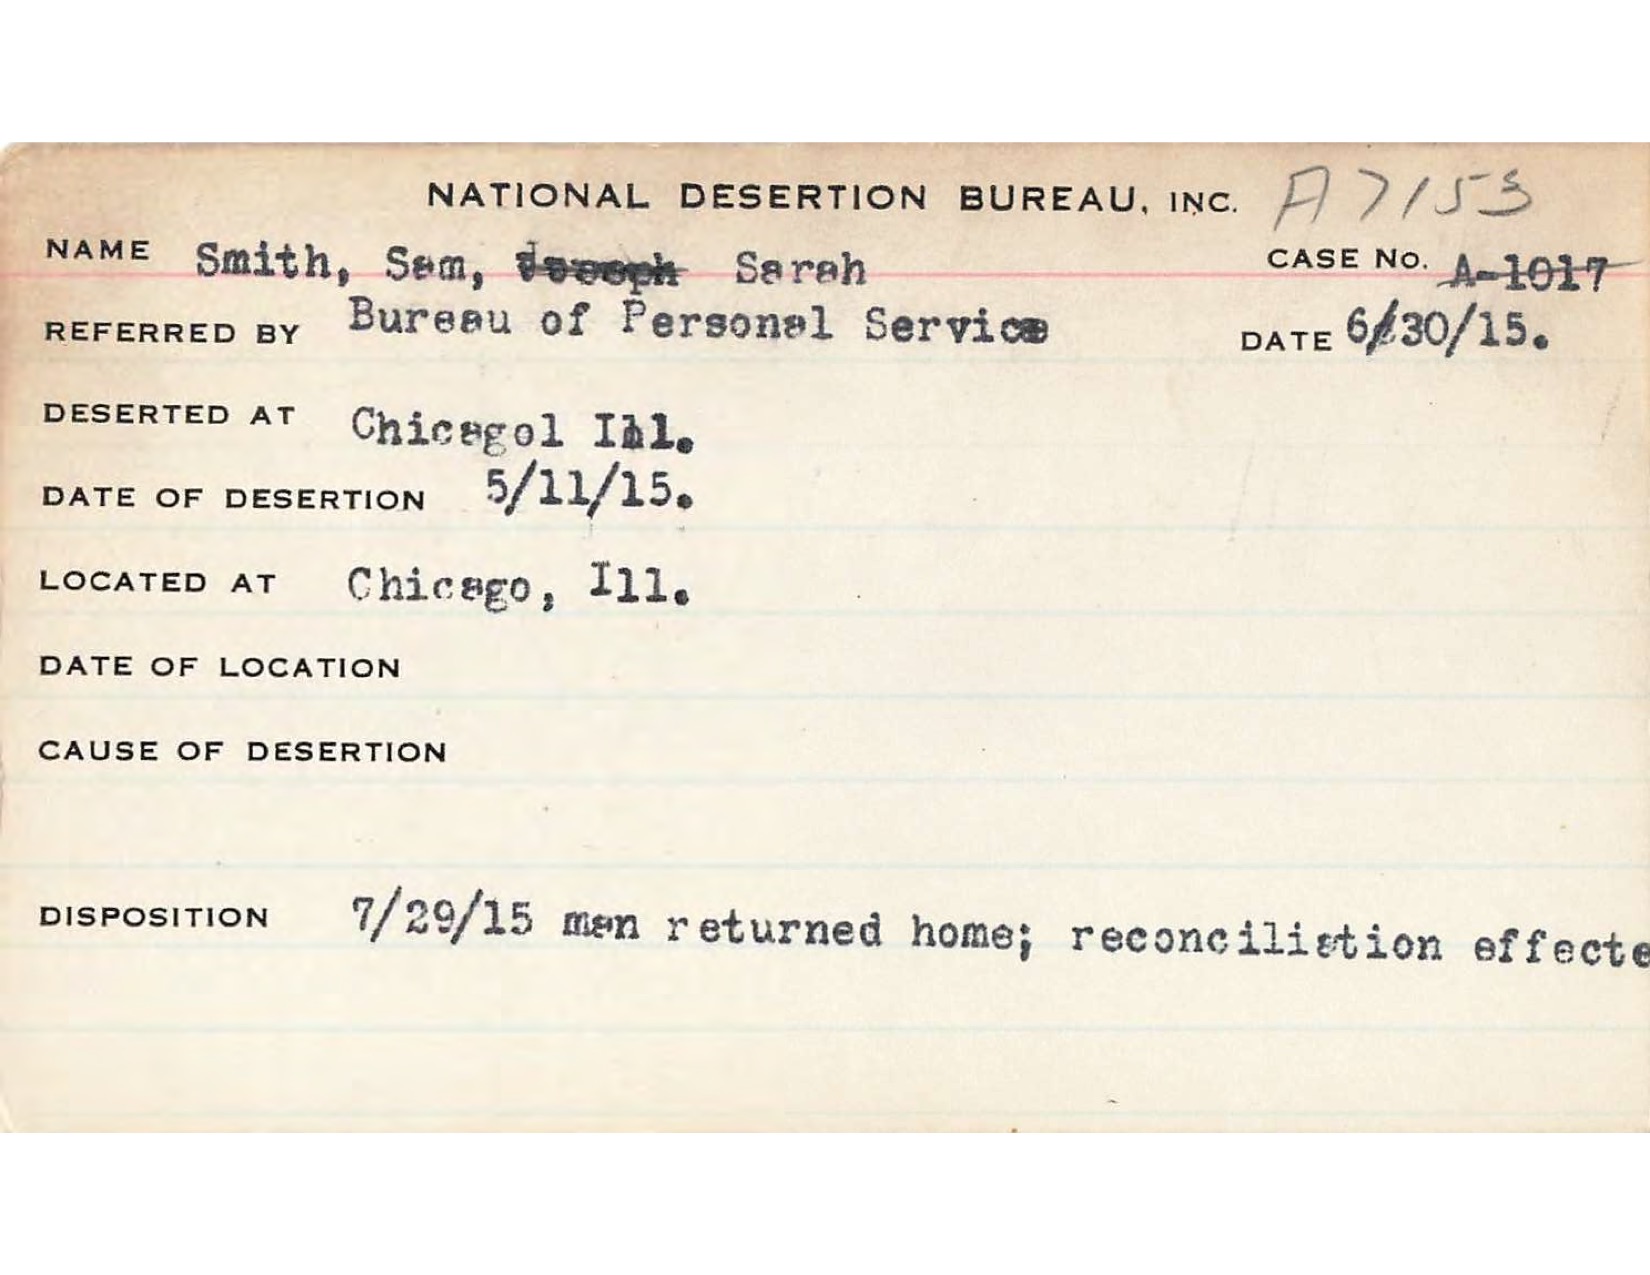 NATIONAL DESERTION BUREAU, INC. A7153
NAME Smith, Sam, Joseph Sarah CASE No. A-1017
REFERRED BY Bureau of Personal Service DATE 6/30/15.
DESERTED AT Chicagol Ill.
DATE OF DESERTION 5/11/15.
LOCATED AT Chicago, Ill.
DATE OF LOCATION
CAUSE OF DESERTION
DISPOSITION 7/29/15 man returned home; reconciliation effecte